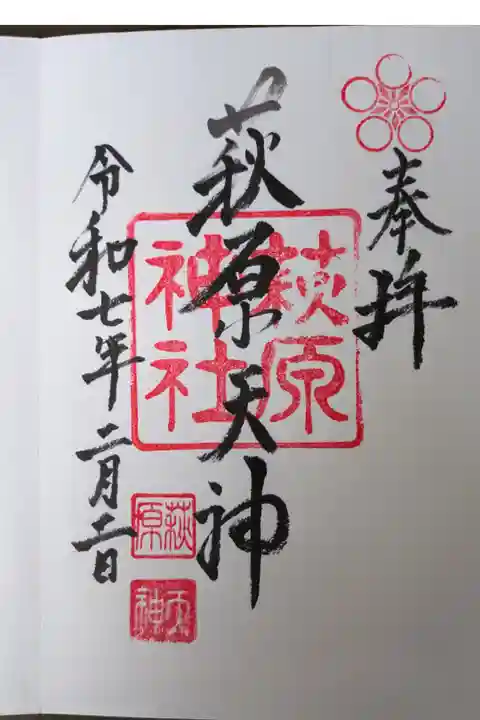 奉拝
萩原天神
萩原
神社
令和七年二月二日
萩原
天神